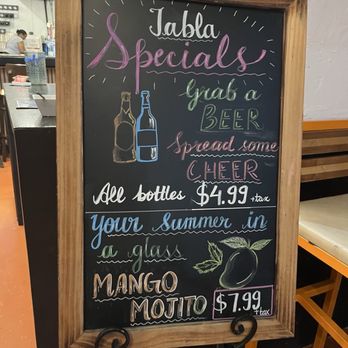 Tabla
Specials
Grab a
BEER
Spread some
CHEER
All bottles $4.99 +tax
Your Summer in
a glass
MANGO
MOJITO $7.99
+tax